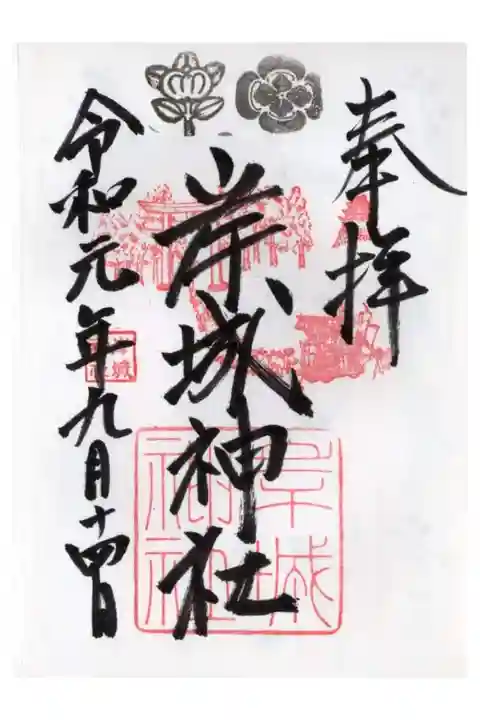 奉拝
岸城神社
令和元年九月十四日
岸城
神社